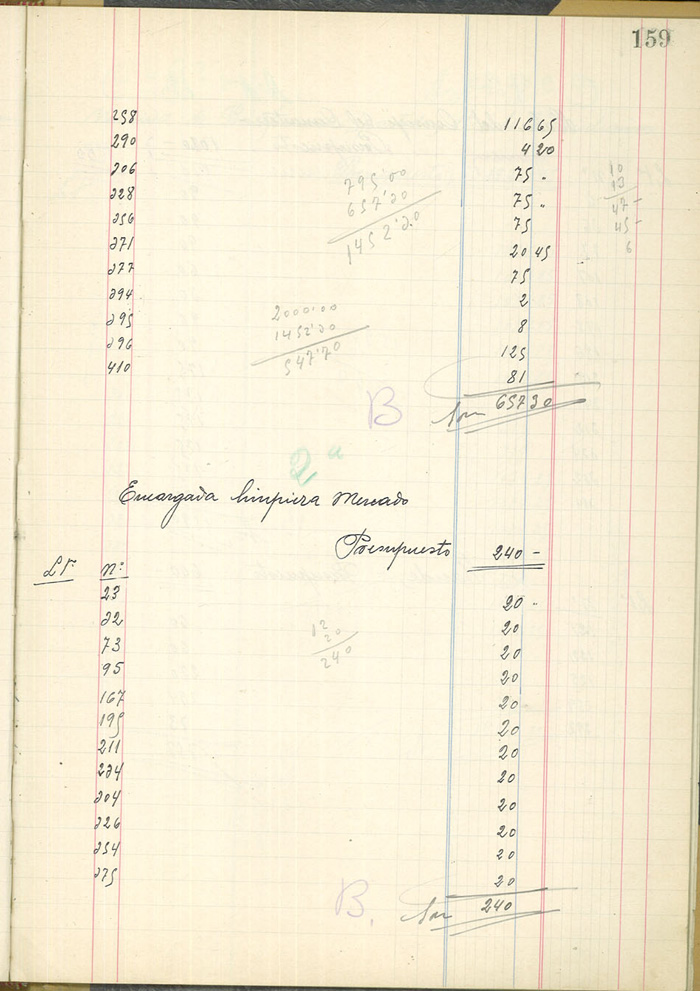 159
258 116 65
290 4 20
206 75 -
228 75 "
256 75
271 20 45
277 75
294 2
295 8
296 125
410 81
Son 657 30
795'00
657'20
1452'20
2000'00
1452'20
547'70
10
13
47 -
45 -
6
B
2ª
Encargada limpieza Mercado
Presupuesto 240 -
Lº nº
23 20 -
22 20
73 20
95 20
167 20
195 20
211 20
234 20
204 20
226 20
254 20
275 20
B. Son 240
12
20
240